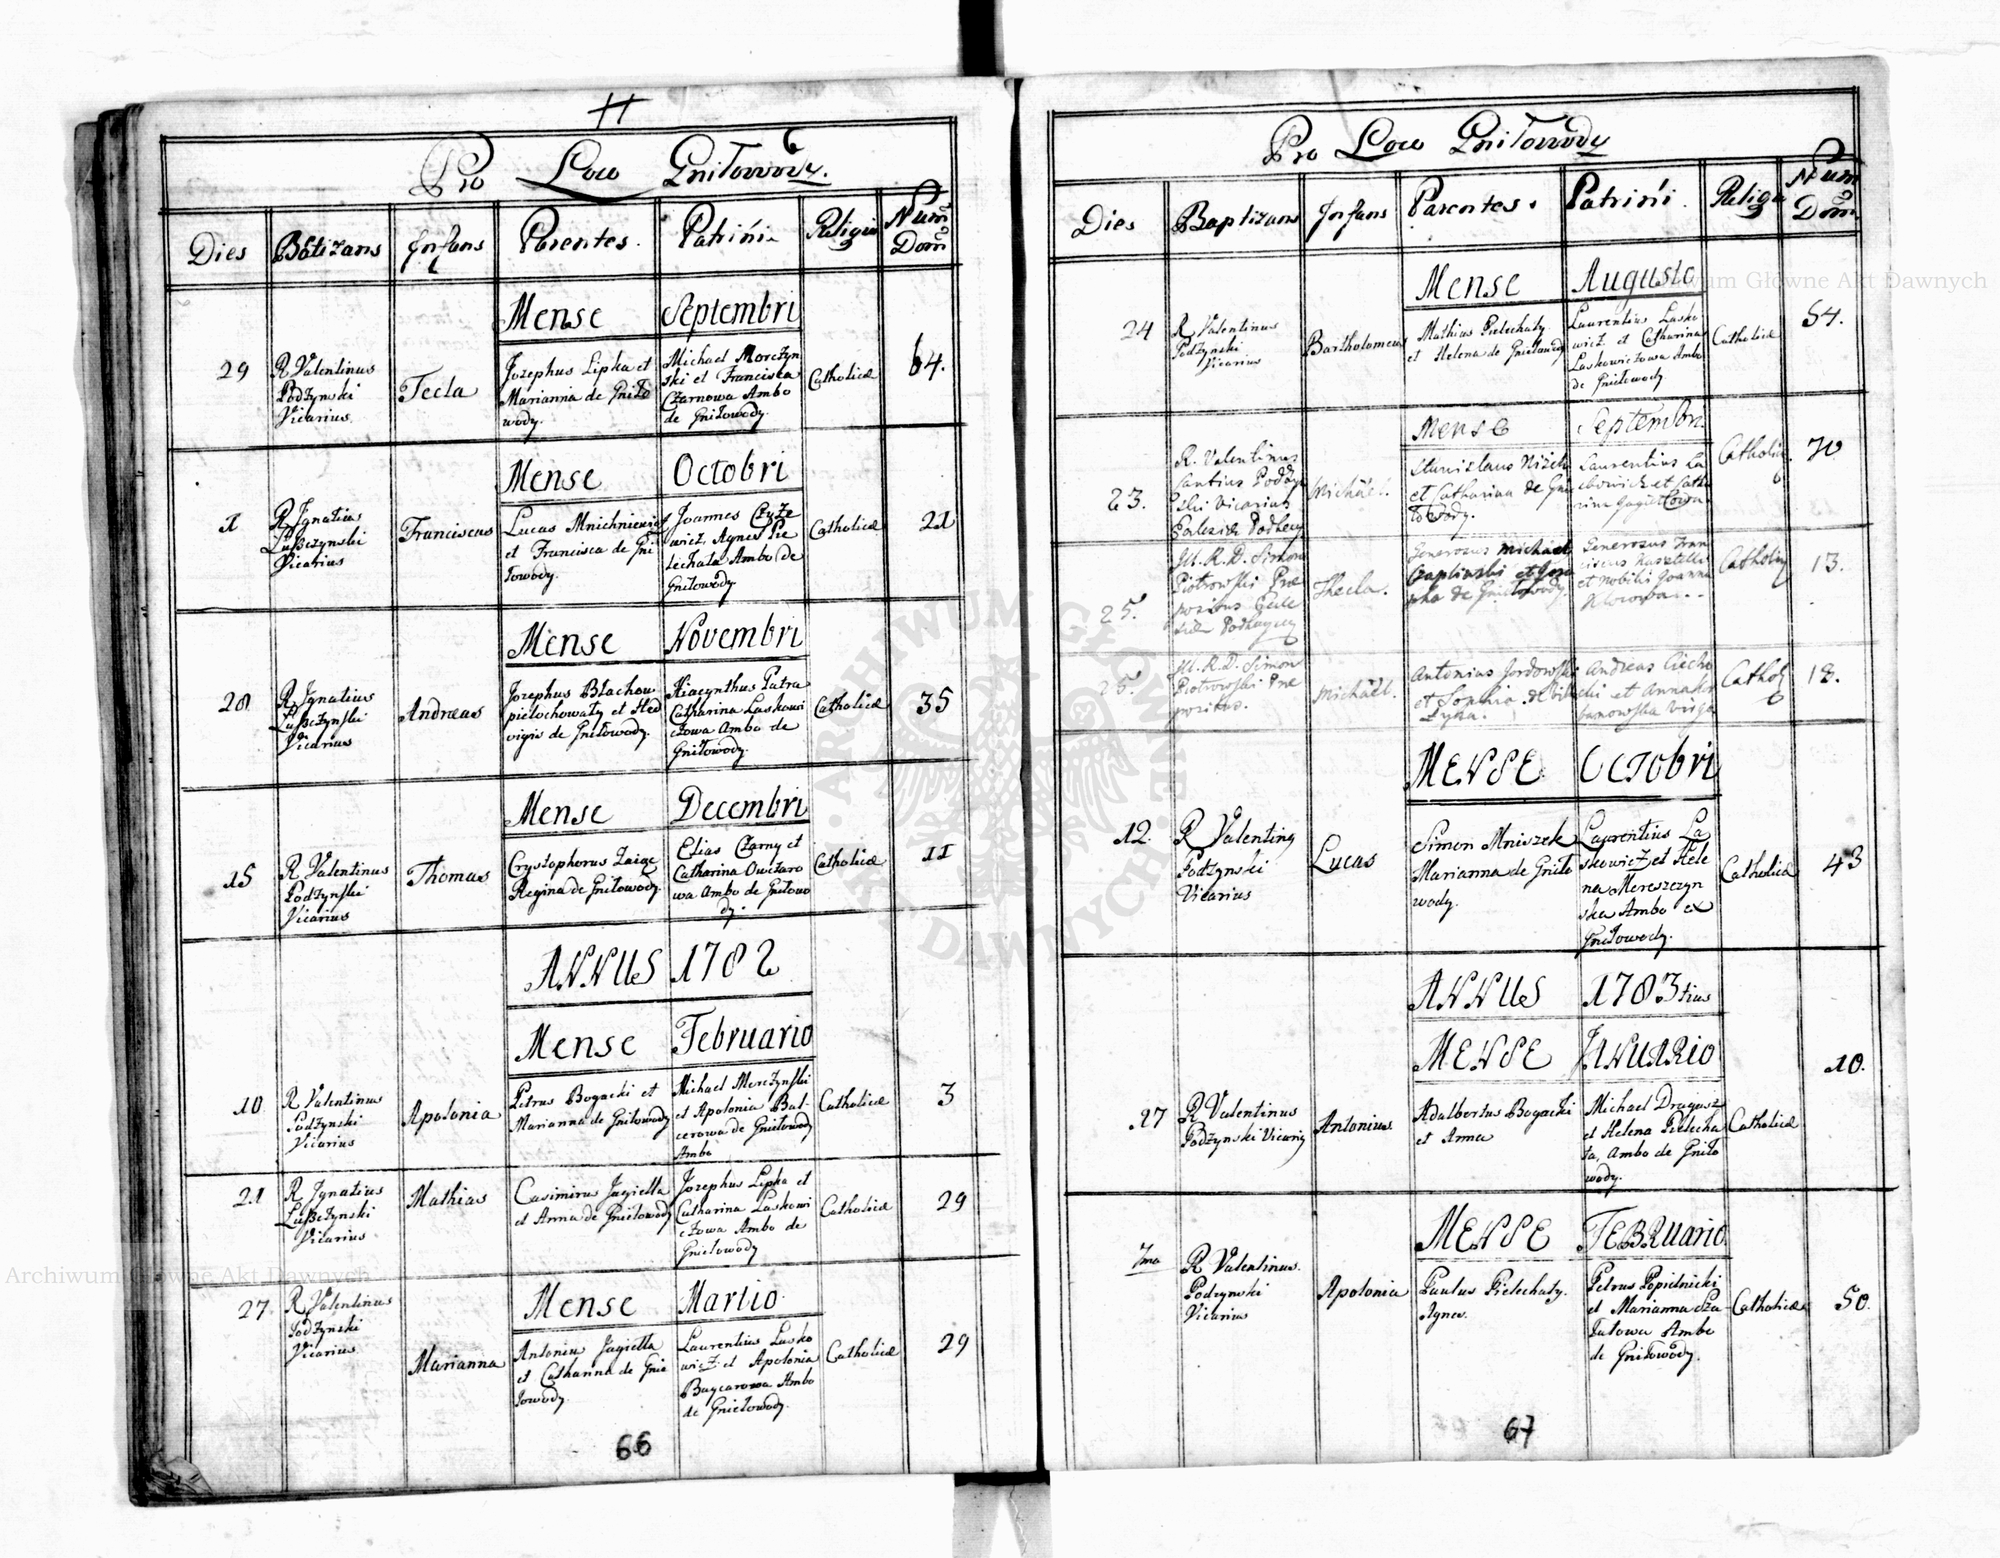 Pro Loco Gnilowody.
Dies Baptizans Infans Parentes. Patrini Religio Num Dom
Mense Septembri
29
R Valentinus
Podzynski
Vicarius.
Tecla
Jozephus Lipka et
Marianna de Gniło
wody.
Michael Morczyn
ski et Franciska
Czarnowa Ambo
de Gniłowody.
Catholicæ
64.
Mense Octobri
1
R Ignatius
Lußczynski
Vicarius
Franciscus
Lucas Mnichniewicz
et Francisca de Gni
łowody.
Joannes
wicz, Agnes Pie
lechata Ambo de
Gniłowody
Catholicæ
21
Mense Novembri
28
R Ignatius
Lußczynski
Vicarius
Andreas
Jozephus Blachow
pielochowaty et Hed
vigis de Gniłowody.
Hiacynthus Putra
Catharina Laskowi
czowa Ambo de
Gniłowody.
Catholicæ
35
Mense Decembri
15
R Valentinus
Podzynski
Vicarius
Thomas
Crystophorus Zaige
Regina de Gniłowody.
Elias Czarny et
Catharina Owczaro
wa Ambo de Gniłowo
dy.
Catholicæ
11
ANNUS 1782
Mense Februario
10
R Valentinus
Podzynski
Vicarius
Apolonia
Petrus Bogacki et
Marianna de Gniłowody
Michael Morczynski
et Apolonia Bal-
cerowa de Gniełowody
Ambo
Catholicæ
3
21
R Ignatius
Lußczynski
Vicarius
Mathias
Casimirus Jagiella
et Anna de Gniełowody
Jozephus Lipka et
Catharina Laskowi
czowa Ambo de
Gniełowody
Catholicæ
29
Mense Martio
27.
R Valentinus
Podzynski
Vicarius
Marianna
Antonius Jagiella
et Catharina de Gnie
łowody.
Laurentius Lasko
wicz et Apolonia
Baycarowa Ambo
de Gniełowody.
Catholicæ
29
66
Pro Loco Gniłowody
Dies Baptizans Infans Parentes. Patrini. Religio Num Dom
Mense Augusto
24
R Valentinus
Podzynski
Vicarius
Bartholomeus
Mathias Pielechaty.
et Helena de Gniełowody
Laurentius Lasko
wicz et Catharina
Laskowiczowa Ambo
de Gniełowody
Catholicæ
54.
Mense Septembri
23.
R. Valentinus
Cantius Podzyn
ski Vicarius
Ecclesiæ Podhecy
Michaël.
Stanislaus
et Catharina de Gni
łowody.
Laurentius La
et Cath
rina
Catholic
70
25.
Ill. R. D. Simon
Piotrowski Præ
positus Eccle
siæ Podhaycen
Thecla.
Generosus Michael
Czaplinski et Jose
pha de Gniłowody.
Generosus Fran
ciscus
et Nobilis Joanna
Catholic
13.
25.
Ill. R. D. Simon
Piotrowski Præ
positus.
Michaël.
Antonius Jordowski
et Sophia
Andreas
et Anna
Virgo
Cathol
18.
MENSE OCTOBRI
12.
R Valentinus
Podzynski
Vicarius
Lucas
Simon Mniszek
Marianna de Gniło
wody.
Laurentius La
skowicz et Hele
na Mereszczyn
ska Ambo ex
Gniłowody.
Catholicæ
43
ANNUS 1783tius
MENSE JANUARIO
27
R Valentinus
Podzynski Vicarius
Antonius
Adalbertus Bogacki
et Anna
Michael Dragusz
et Helena Pielecha
ta, Ambo de Gniło
wody.
Catholicæ
10.
MENSE FEBRUARIO
7ma
R Valentinus.
Podzynski
Vicarius
Apolonia
Paulus Pielechaty.
Agnes.
Petrus Popielnicki
et Marianna
Ambo
de Gniłowody.
Catholicæ
50.
67
Archiwum Główne Akt Dawnych
Archiwum Główne Akt Dawnych
ARCHIWUM GŁÓWNE AKT DAWNYCH